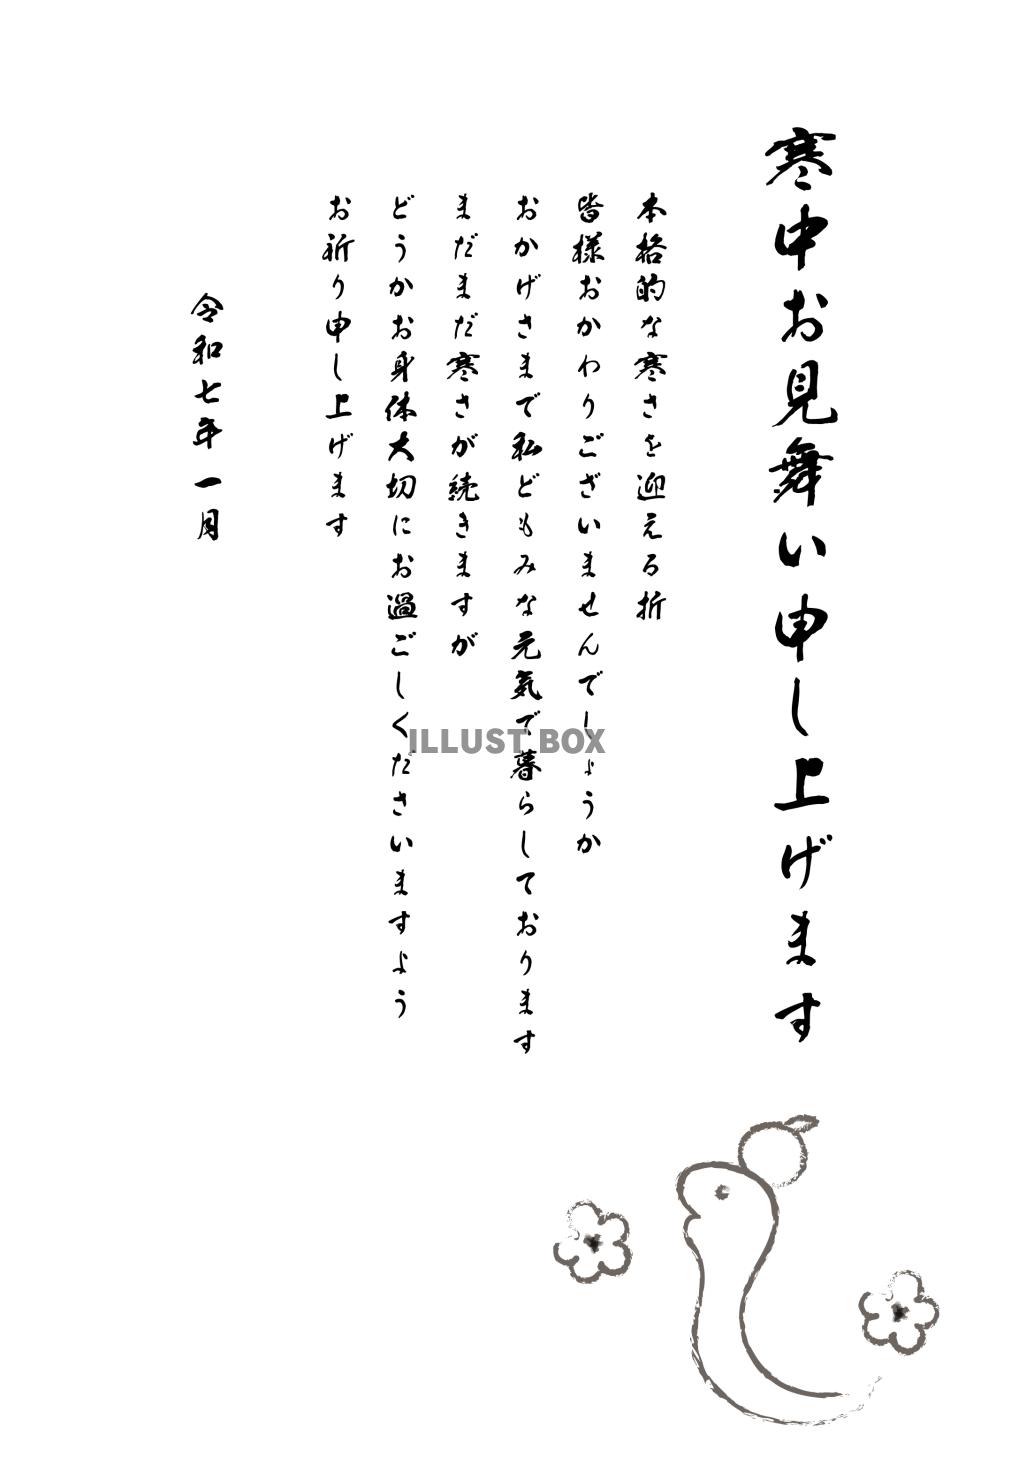 寒中お見舞い申し上げます
本格的な寒さを迎える折
皆様おかわりございませんでしょうか
おかげさまで私どもみな元気で暮らしております
まだまだ寒さが続きますが
どうかお身体大切にお過ごしくださいますよう
お祈り申し上げます
令和七年一月
ILLUST BOX